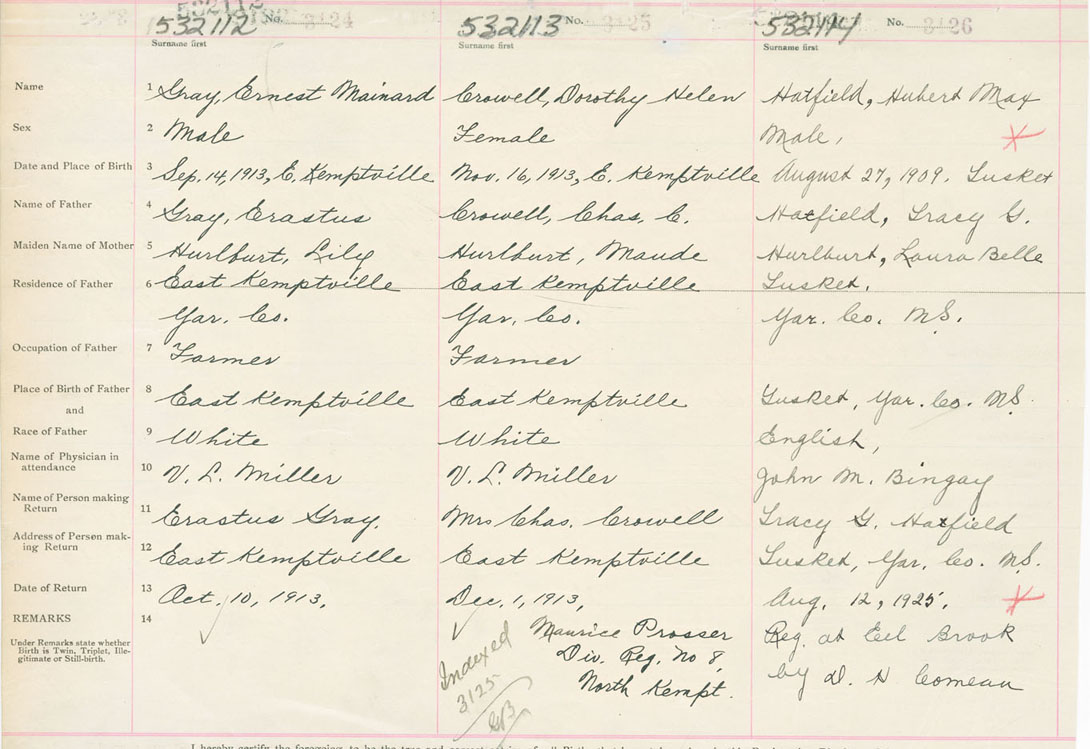 532112 No. 3124 532113 No. 3125 532114 No. 3126
Surname first Surname first Surname first
Name 1 Gray, Ernest Mainard Crowell, Dorothy Helen Hatfield, Hubert Max
Sex 2 Male Female Male,
Date and Place of Birth 3 Sep. 14, 1913, E. Kemptville Nov. 16, 1913, E. Kemptville August 27, 1909. Tusket
Name of Father 4 Gray, Erastus Crowell, Chas. C. Hatfield, Tracy G.
Maiden Name of Mother 5 Hurlburt, Lily Hurlburt, Maude Hurlburt, Laura Belle
Residence of Father 6 East Kemptville East Kemptville Tusket,
Yar. Co. Yar. Co. Yar. Co. N.S.
Occupation of Father 7 Farmer Farmer
Place of Birth of Father 8 East Kemptville East Kemptville Tusket, Yar. Co. N.S.
and
Race of Father 9 White White English,
Name of Physician in
attendance 10 V. L. Miller V. L. Miller John M. Bingay
Name of Person making
Return 11 Erastus Gray, Mrs Chas. Crowell Tracy G. Hatfield
Address of Person mak-
ing Return 12 East Kemptville East Kemptville Tusket, Yar. Co. N.S.
Date of Return 13 Oct. 10, 1913, Dec. 1, 1913, Aug. 12, 1925.
REMARKS 14
Under Remarks state whether
Birth is Twin, Triplet, Ille-
gitimate or Still-birth.
Maurice Prosser
Div. Reg. No 8,
North Kempt.
Indexed
3125
GB
Reg. at Eel Brook
by D. H Comeau